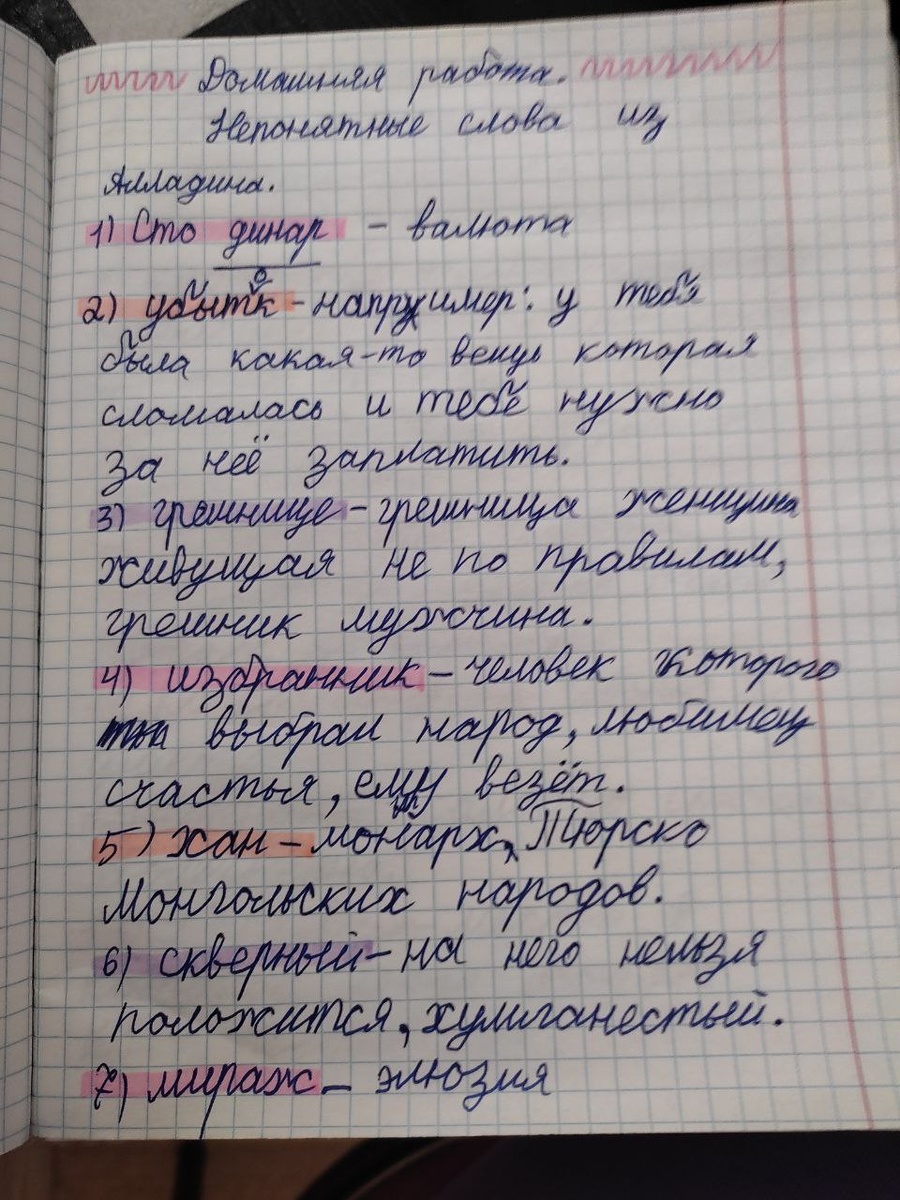 Домашняя работа.
Непонятные слова из
Алладина.
1) Сто динар - валюта
2) убыток - например: у тебя
была какая-то вещь которая
сломалась и тебе нужно
за неё заплатить.
3) грешнице - грешница женщина
живущая не по правилам,
грешник мужчина.
4) избранник - человек которого
выбрал народ, любимец
счастья, ему везёт.
5) хан - монарх, Тюрско
Монгольских народов.
6) скверный - на него нельзя
положится, хулиганестый.
7) мираж - элюзия